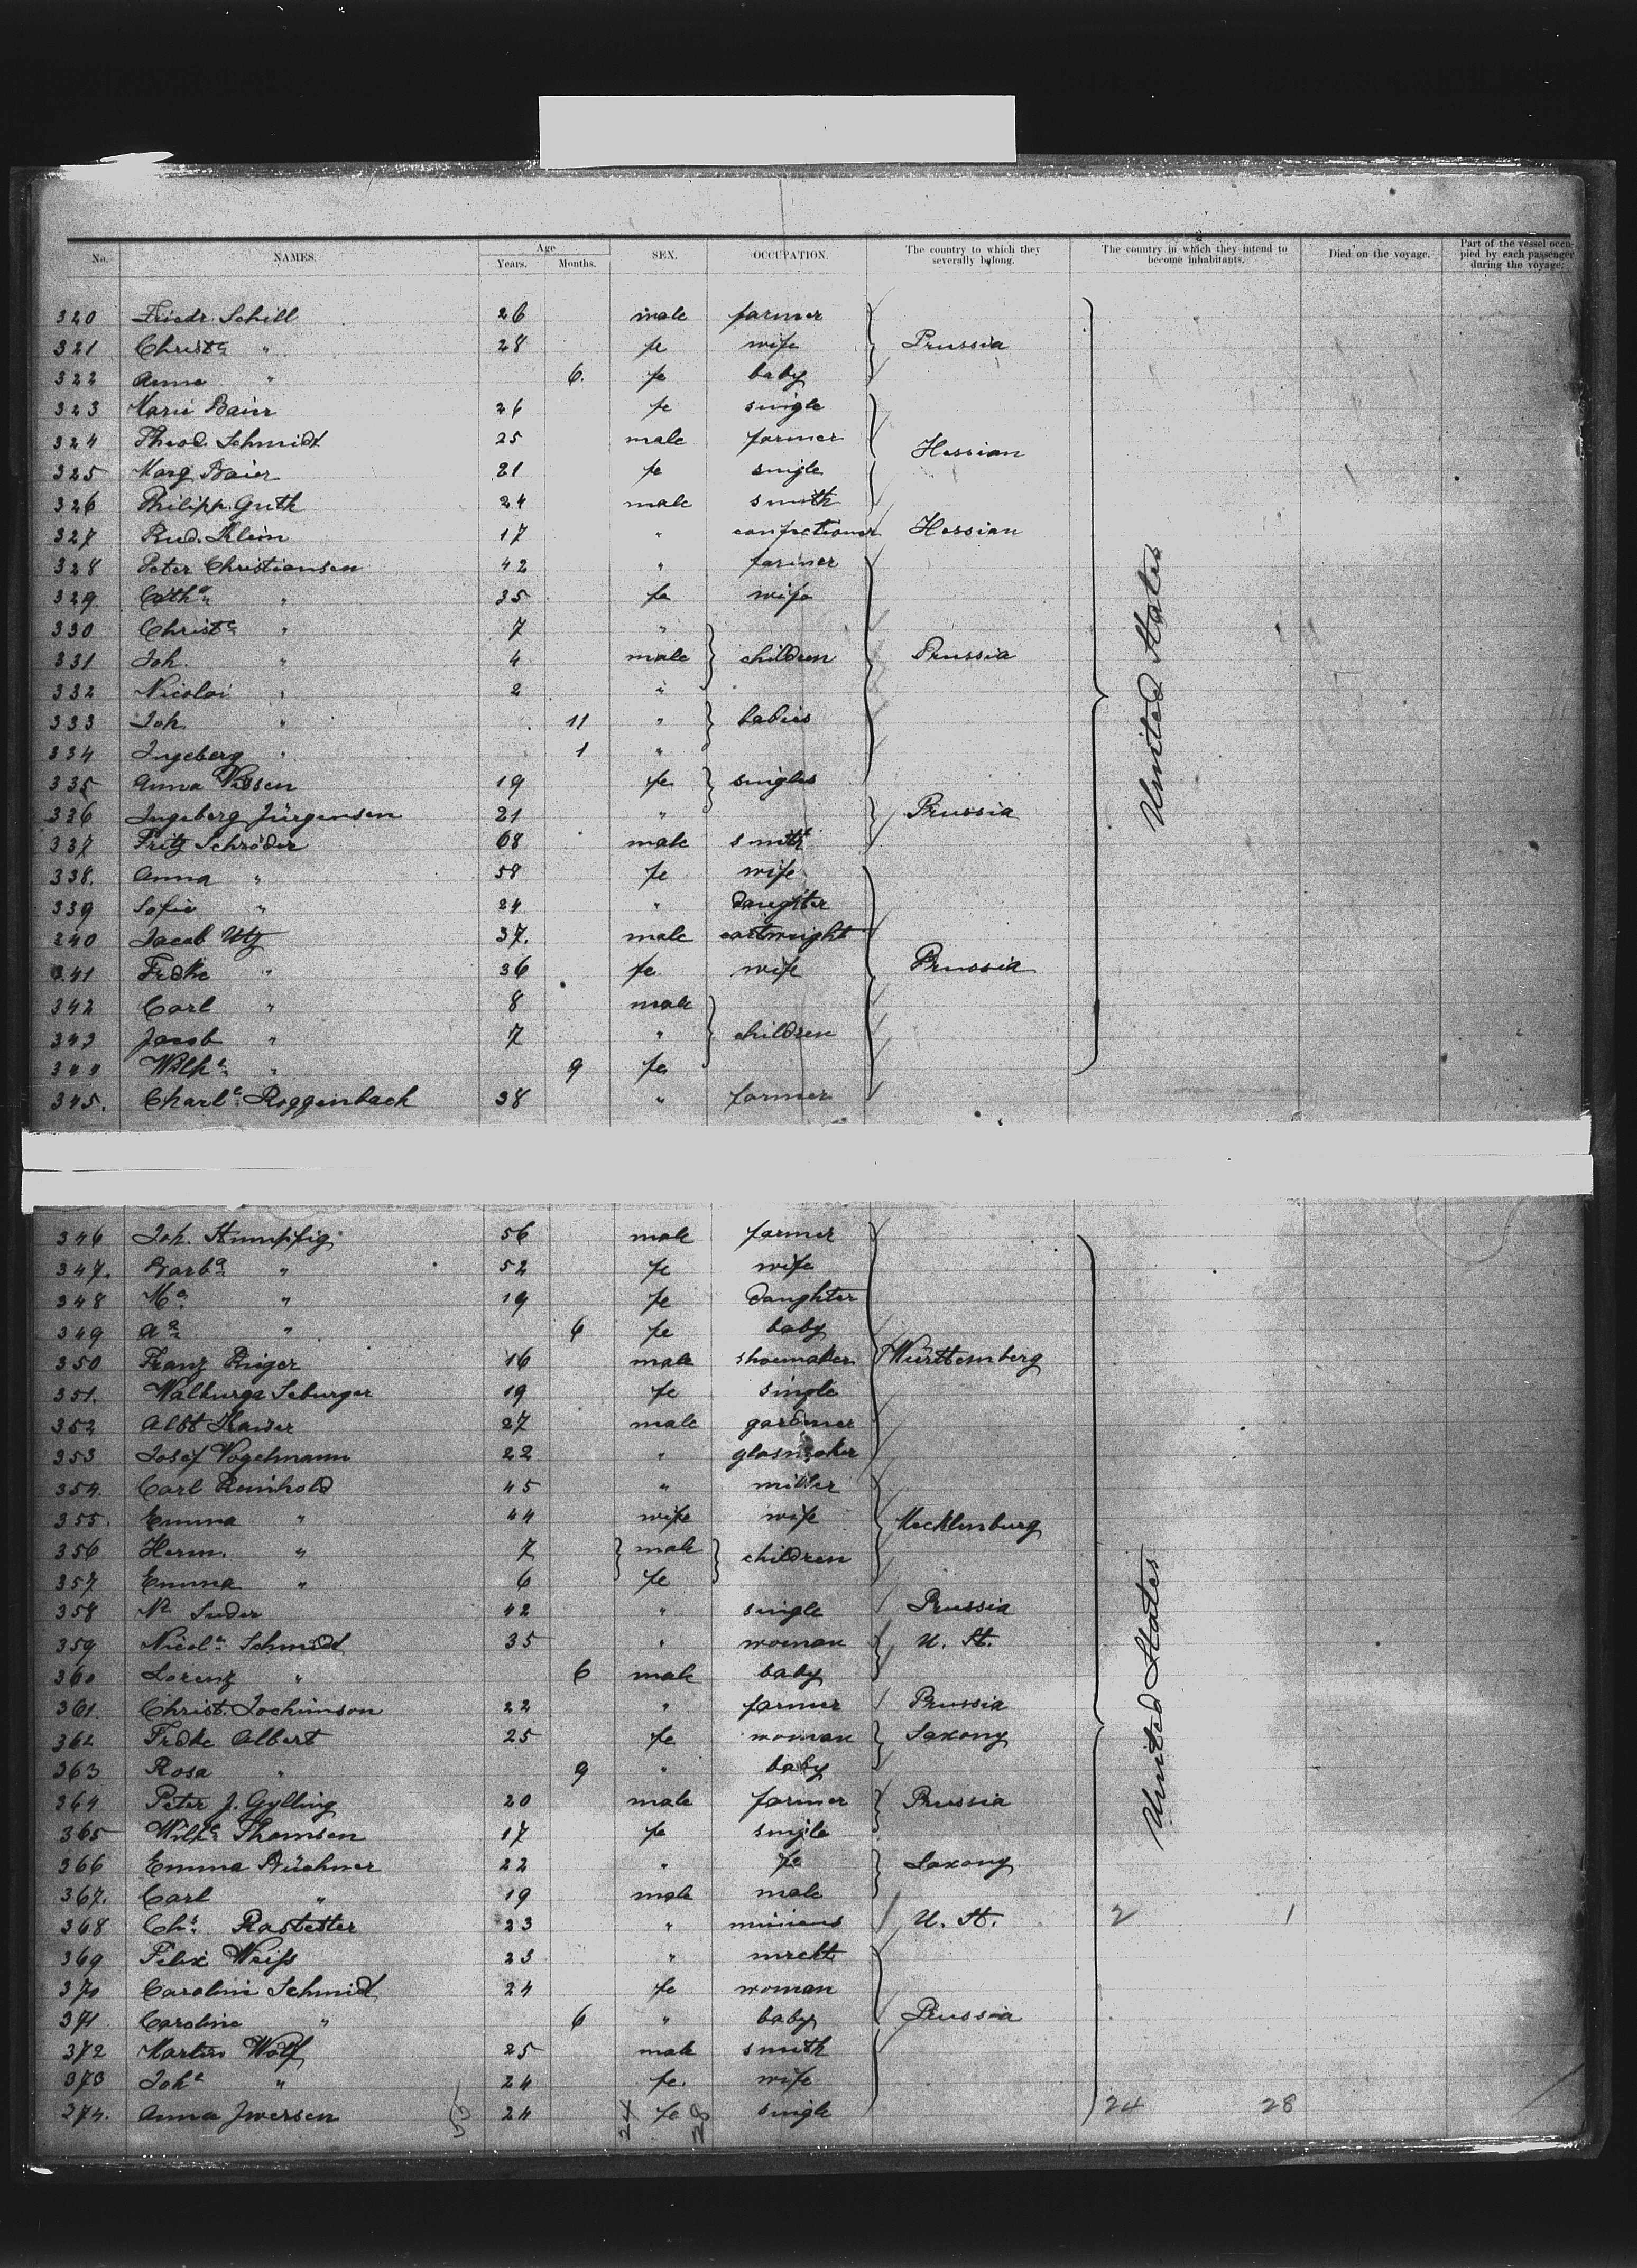 No. NAMES. Age Years. Months. SEX. OCCUPATION. The country to which they severally belong. The country in which they intend to become inhabitants. Died on the voyage. Part of the vessel occupied by each passenger during the voyage.
320 Friedr. Schill 26 male farmer
321 Christa " 28 fe wife Prussia
322 Anna " 6. fe baby
323 Marie Baier 26 fe single
324 Theod. Schmidt 25 male farmer Hessian
325 Marg Baier 21 fe single
326 Philipp Guth 24 male smith
327 Rud. Klein 17 " confectioner Hessian
328 Peter Christiansen 42 " farmer
329 Catha " 35 fe wife
330 Christe " 7 "
331 Joh. " 4 male children Prussia
332 Nicolai " 2 "
333 Joh. " 11 " babies
334 Ingeberg " 1 "
335 Anna Nissen 19 fe singles
336 Ingeberg Jürgensen 21 " Prussia
337 Fritz Schröder 68 male smith
338. Anna " 58 fe wife
339 Sofie " 24 " daughter
240 Jacob Utz 37. male cartwright
341 Fredke " 36 fe wife Prussia
342 Carl " 8 male
343 Jacob " 7 " children
344 Wilhe " 9 fe
345. Charle Roggenbach 38 " farmer
United States
346 Joh. Stumpfig 56 male farmer
347. Barba " 52 fe wife
348 Ma " 19 fe daughter
349 Aa " 6 fe baby
350 Franz Rieger 16 male shoemaker Württemberg
351. Walburga Seburger 19 fe single
352 Albt Kaiser 27 male gardener
353 Josef Vogelmann 22 " glasmaker
354. Carl Reinhold 45 " miller
355. Emma " 44 wife wife Mecklenburg
356 Herm. " 7 male children
357 Emma " 6 fe
358 Suder 42 " single Prussia
359 Nicola Schmidt 35 " woman U. St.
360 Lorenz " 6 male baby
361. Christ. Jochimson 22 " farmer Prussia
362 Fredke Albert 25 fe woman Saxony
363 Rosa " 9 " baby
364 Peter J. Gylling 20 male farmer Prussia
365 Wilhe Thomsen 17 fe single
366 Emma Büchner 22 " fe Saxony
367. Carl " 19 male male
368 Chs. Rastetter 23 " U. St. 2 1
369 Felix Weiß 23 " mrcht
370 Caroline Schmid 24 fe woman
371 Caroline " 6 " baby Prussia
372 Martin Wolf 25 male smith
373 Joha " 24 fe. wife
374. Anna Jwersen 24 fe single 24 28
United States
24 28